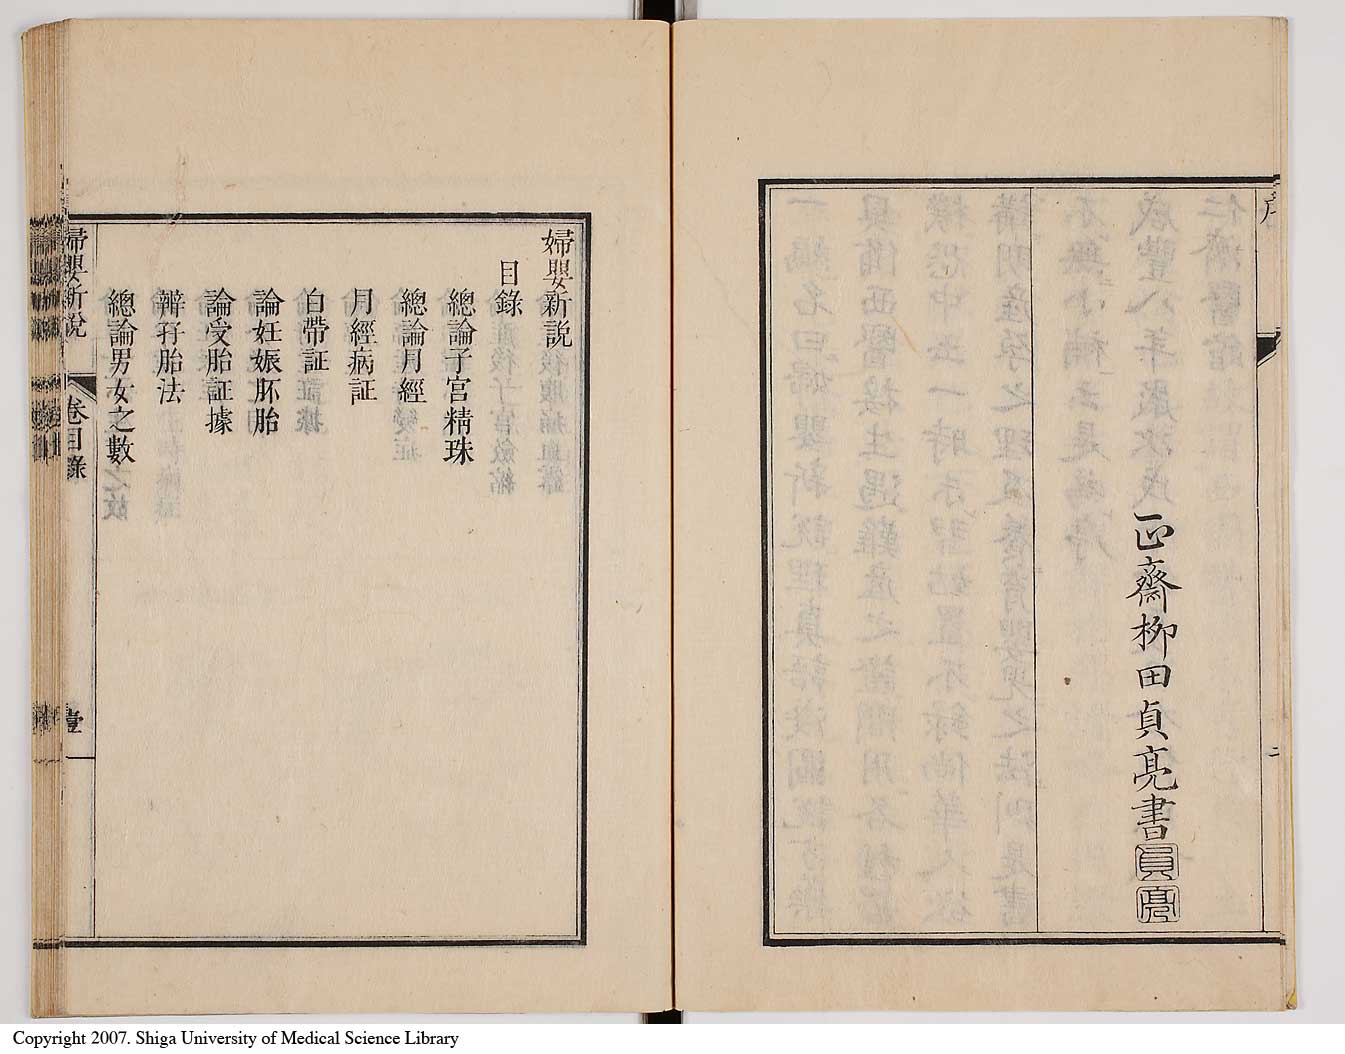 序
一正齋柳田貞亮書
貞亮
婦嬰新說
目錄
總論子宮精珠
總論月經
月經病証
白帶証
論妊娠胚胎
論受胎証據
辯孖胎法
總論男女之數
婦嬰新說
卷目錄
壹
Copyright 2007. Shiga University of Medical Science Library